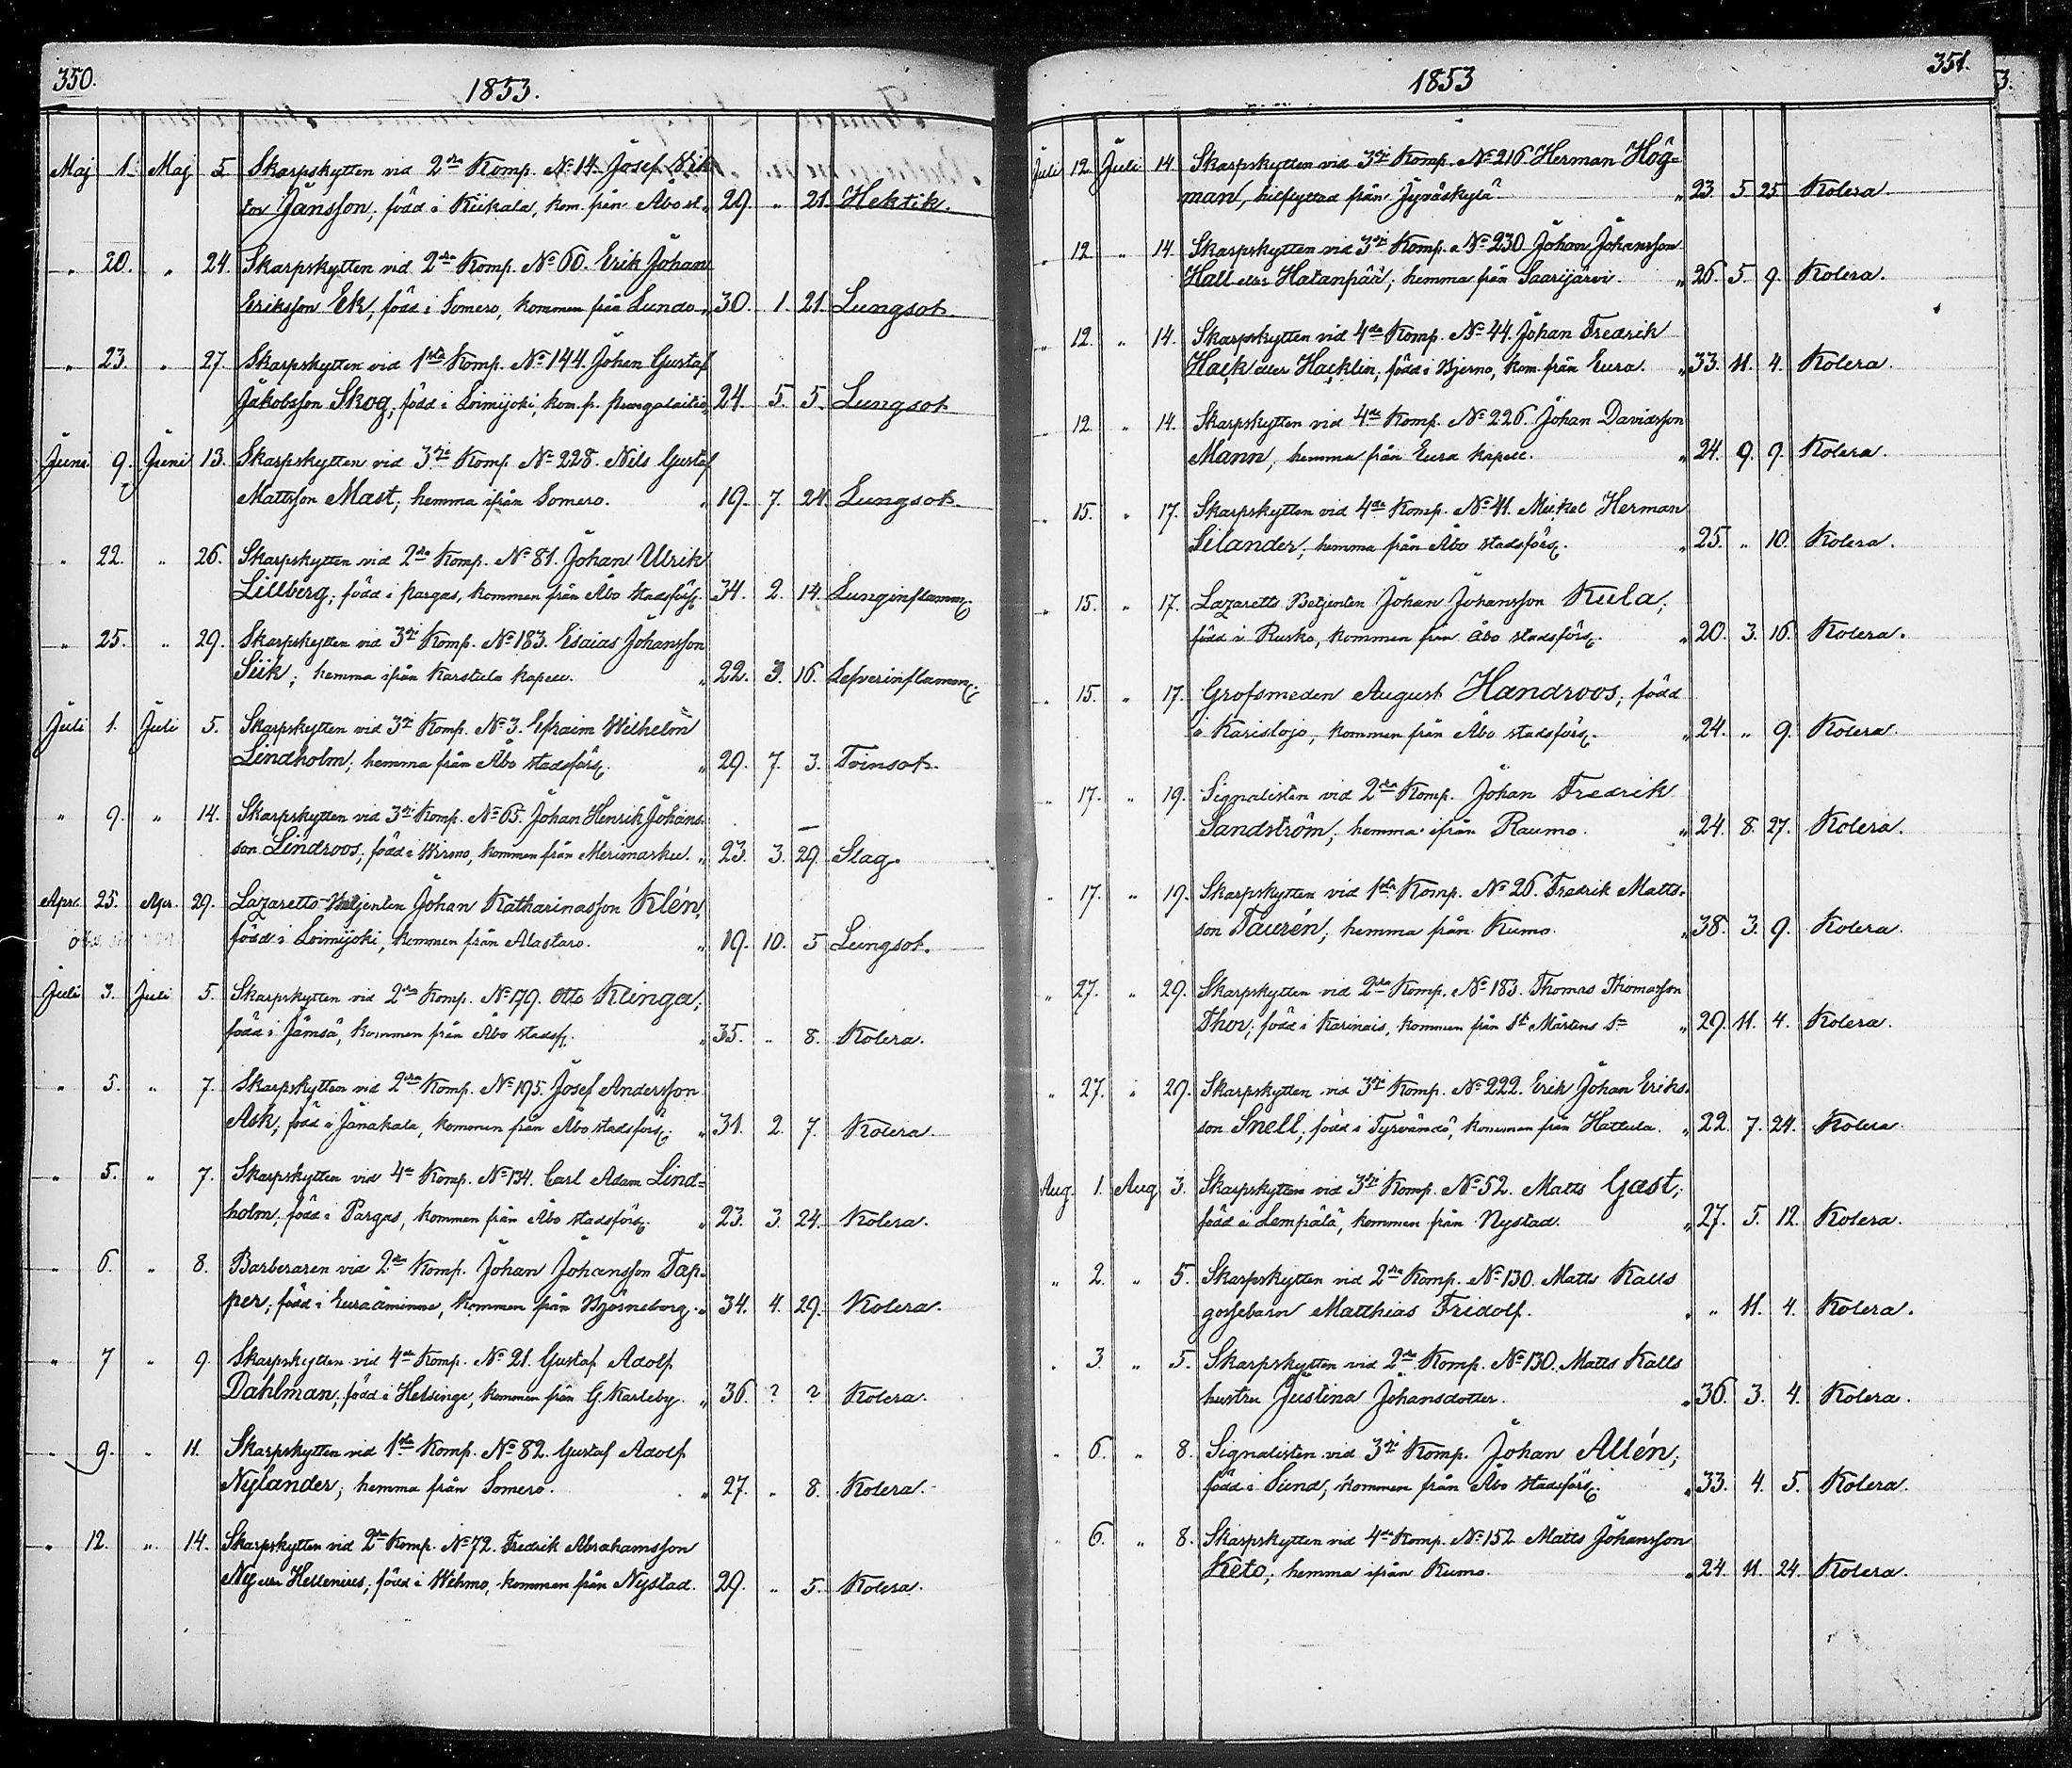 350.
1853.
Maj 1. Maj 5. Skarpskytten vid 2dra Komp. No 14. Josef Vik
tor Jansson, född i Kiikala, kom. från Åbo st. 29. " 21. Hektik.
" 20. " 24. Skarpskytten vid 2dra Komp. No 60. Erik Johan
Eriksson Ek, född i Somero, kommen från Lundo. 30. 1. 21. Lungsot.
" 23. " 27. Skarpskytten vid 1sta Komp. No 144. Johan Gustaf
Jakobsson Skog, född i Loimijoki, kom. fr. 24. 5. 5. Lungsot
Juni 9. Juni 13. Skarpskytten vid 3dje Komp No 228. Nils Gustaf
Mattsson Mast; hemma ifrån Somero. " 19. 7. 24 Lungsot.
" 22. " 26. Skarpskytten vid 2dra Komp. No 81. Johan Ulrik
Lillberg, född i Pargas, kommen från Åbo stadsförs. 34. 2. 14. Lunginflamm.
" 25. " 29. Skarpskytten vid 3dje Komp. No 183. Esaias Johansson
Siik; hemma ifrån Karstula kapell. " 22. 3. 16. Lefverinflamm.
Juli 1. Juli 5. Skarpskytten vid 3dje Komp. No 3. Efraim Wilhelm
Lindholm; hemma från Åbo stadsförs. " 29. 7. 3. Tvinsot.
" 9. " 14. Skarpskytten vid 3dje Komp. No 65. Johan Henrik Johans-
son Lindroos; född i Wirmo, kommen från Merimasku. " 23. 3. 29. Slag.
Apr. 25. Apr. 29. Lazaretts-Betjenten Johan Katharinasson Klén,
född i Loimijoki, kommen från Alastaro. " 19. 10. 5 Lungsot.
Juli 3. Juli 5. Skarpskytten vid 2dra Komp. No 179. Otto Klinga;
född i Jämsä, kommen från Åbo stadsf. " 35. " 8. Kolera.
" 5. " 7. Skarpskytten vid 2dra Komp. No 195. Josef Andersson
Ask, född i Janakala, kommen från Åbo stadsförs. " 31. 2. 7. Kolera.
" 5. " 7. Skarpskytten vid 4de Komp. No 134. Carl Adam Lind=
holm, född i Pargas, kommen från Åbo stadsförs. " 23. 3. 24. Kolera.
" 6. " 8. Barberaren vid 2dra Komp. Johan Johansson Tap-
per; född i Euraåminne, kommen från Björneborg. " 34. 4. 29. Kolera.
" 7 " 9. Skarpskytten vid 4de Komp. No 21. Gustaf Adolf
Dahlman, född i Helsinge, kommen från G. Karleby. " 36. ? ? Kolera.
" 9. " 11. Skarpskytten vid 1sta Komp. No 82. Gustaf Adolf
Nylander; hemma från Somero. " 27. " 8. Kolera.
" 12. " 14. Skarpskytten vid 2dra Komp. No 72. Fredrik Abrahamsson
Ny eller Hellenius; född i Wehmo, kommen från Nystad. 29. " 5. Kolera.
351.
1853
Juli 12. Juli 14 Skarpskytten vid 3dje Komp. No 216 Herman Hög=
man, hitflyttad från Jyväskylä " 23. 5 25 Kolera.
" 12 " 14. Skarpskytten vid 3dje Komp. No 230 Johan Johansson
Hall eller Hatanpää; hemma från Saarijärvi. " 26. 5. 9. Kolera.
" 12. " 14. Skarpskytten vid 4de Komp. No 44. Johan Fredrik
Hack eller Hacklin; född i Bjerno, kom. från Eura. " 33. 11. 4. Kolera.
" 12. " 14. Skarpskytten vid 4de Komp. No 226. Johan Davidsson
Mann; hemma från Eura kapell. " 24. 9. 9. Kolera.
" 15. " 17. Skarpskytten vid 4de Komp. No 41. Mickel Herman
Silander; hemma från Åbo stadsförs. " 25. " 10. Kolera.
" 15. " 17. Lazaretts Betjenten Johan Johansson Kula;
född i Rusko, kommen från Åbo stadsförs. " 20. 3. 16. Kolera.
" 15. " 17. Grofsmeden August Handroos; född
i Karislojo, kommen från Åbo stadsförs. " 24. " 9. Kolera.
" 17. " 19. Signalisten vid 2dra Komp. Johan Fredrik
Sandström; hemma ifrån Raumo. " 24. 8. 27. Kolera.
" 17. " 19. Skarpskytten vid 1sta Komp. No 26. Fredrik Matts-
son Taurén; hemma från Kumo. " 38. 3. 9. Kolera.
" 27. " 29. Skarpskytten vid 2dra Komp. No 183. Thomas Thomasson
Thor; född i Karinais, kommen från St Mårtens Sn " 29. 11. 4. Kolera.
" 27. " 29. Skarpskytten vid 3dje Komp. No 222. Erik Johan Eriks-
son Snell; född i Tyrvändö, kommen från Hattula. " 22. 7. 24. Kolera
Aug. 1. Aug 3. Skarpskytten vid 3dje Komp. No 52. Matts Gast;
född i Lempälä, kommen från Nystad. " 27. 5. 12. Kolera.
" 2. " 5. Skarpskytten vid 2dra Komp. No 130. Matts Kalls
gossebarn Matthias Fridolf. " " 11. 4. Kolera.
" 3. " 5. Skarpskytten vid 2dra Komp. No 130. Matts Kalls
hustru Justina Johansdotter. " 36. 3. 4. Kolera.
" 6. " 8. Signalisten vid 3dje Komp. Johan Allén;
född i Sund, kommen från Åbo stadsförs. " 33. 4. 5. Kolera.
" 6. " 8. Skarpskytten vid 4de Komp. No 152 Matts Johansson
Keto; hemma ifrån Kumo. " 24. 11. 24. Kolera.